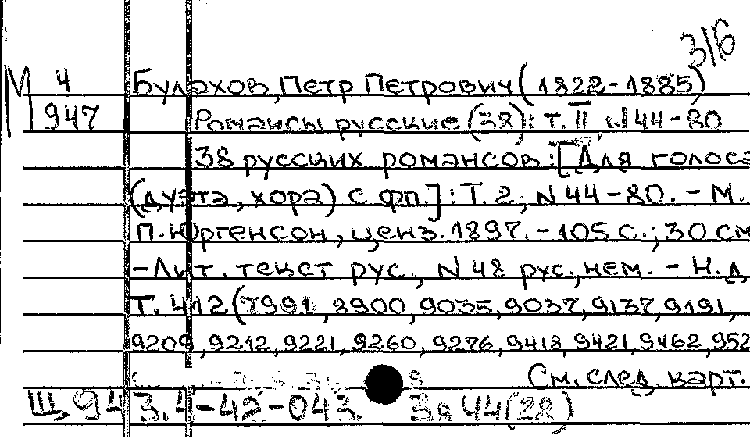 316
М 4 Булахов, Петр Петрович (1822-1885)
947 Романсы русские (38): т. II, N 44-80
38 русских романсов: [Для голоса
(дуэта, хора) с фп.]: Т. 2, N 44-80. - М.
П. Юргенсон, ценз. 1897. - 105 с.; 30 см
- Лит. текст рус., N 48 рус., нем. - Н. д.
Т. 412 (7991, 8900, 9035, 9037, 9137, 9191,
9209, 9212, 9221, 9260, 9276, 9418, 9421, 9462, 952
См. след. карт.
Щ 943.4-42-043. 3я 44(28)